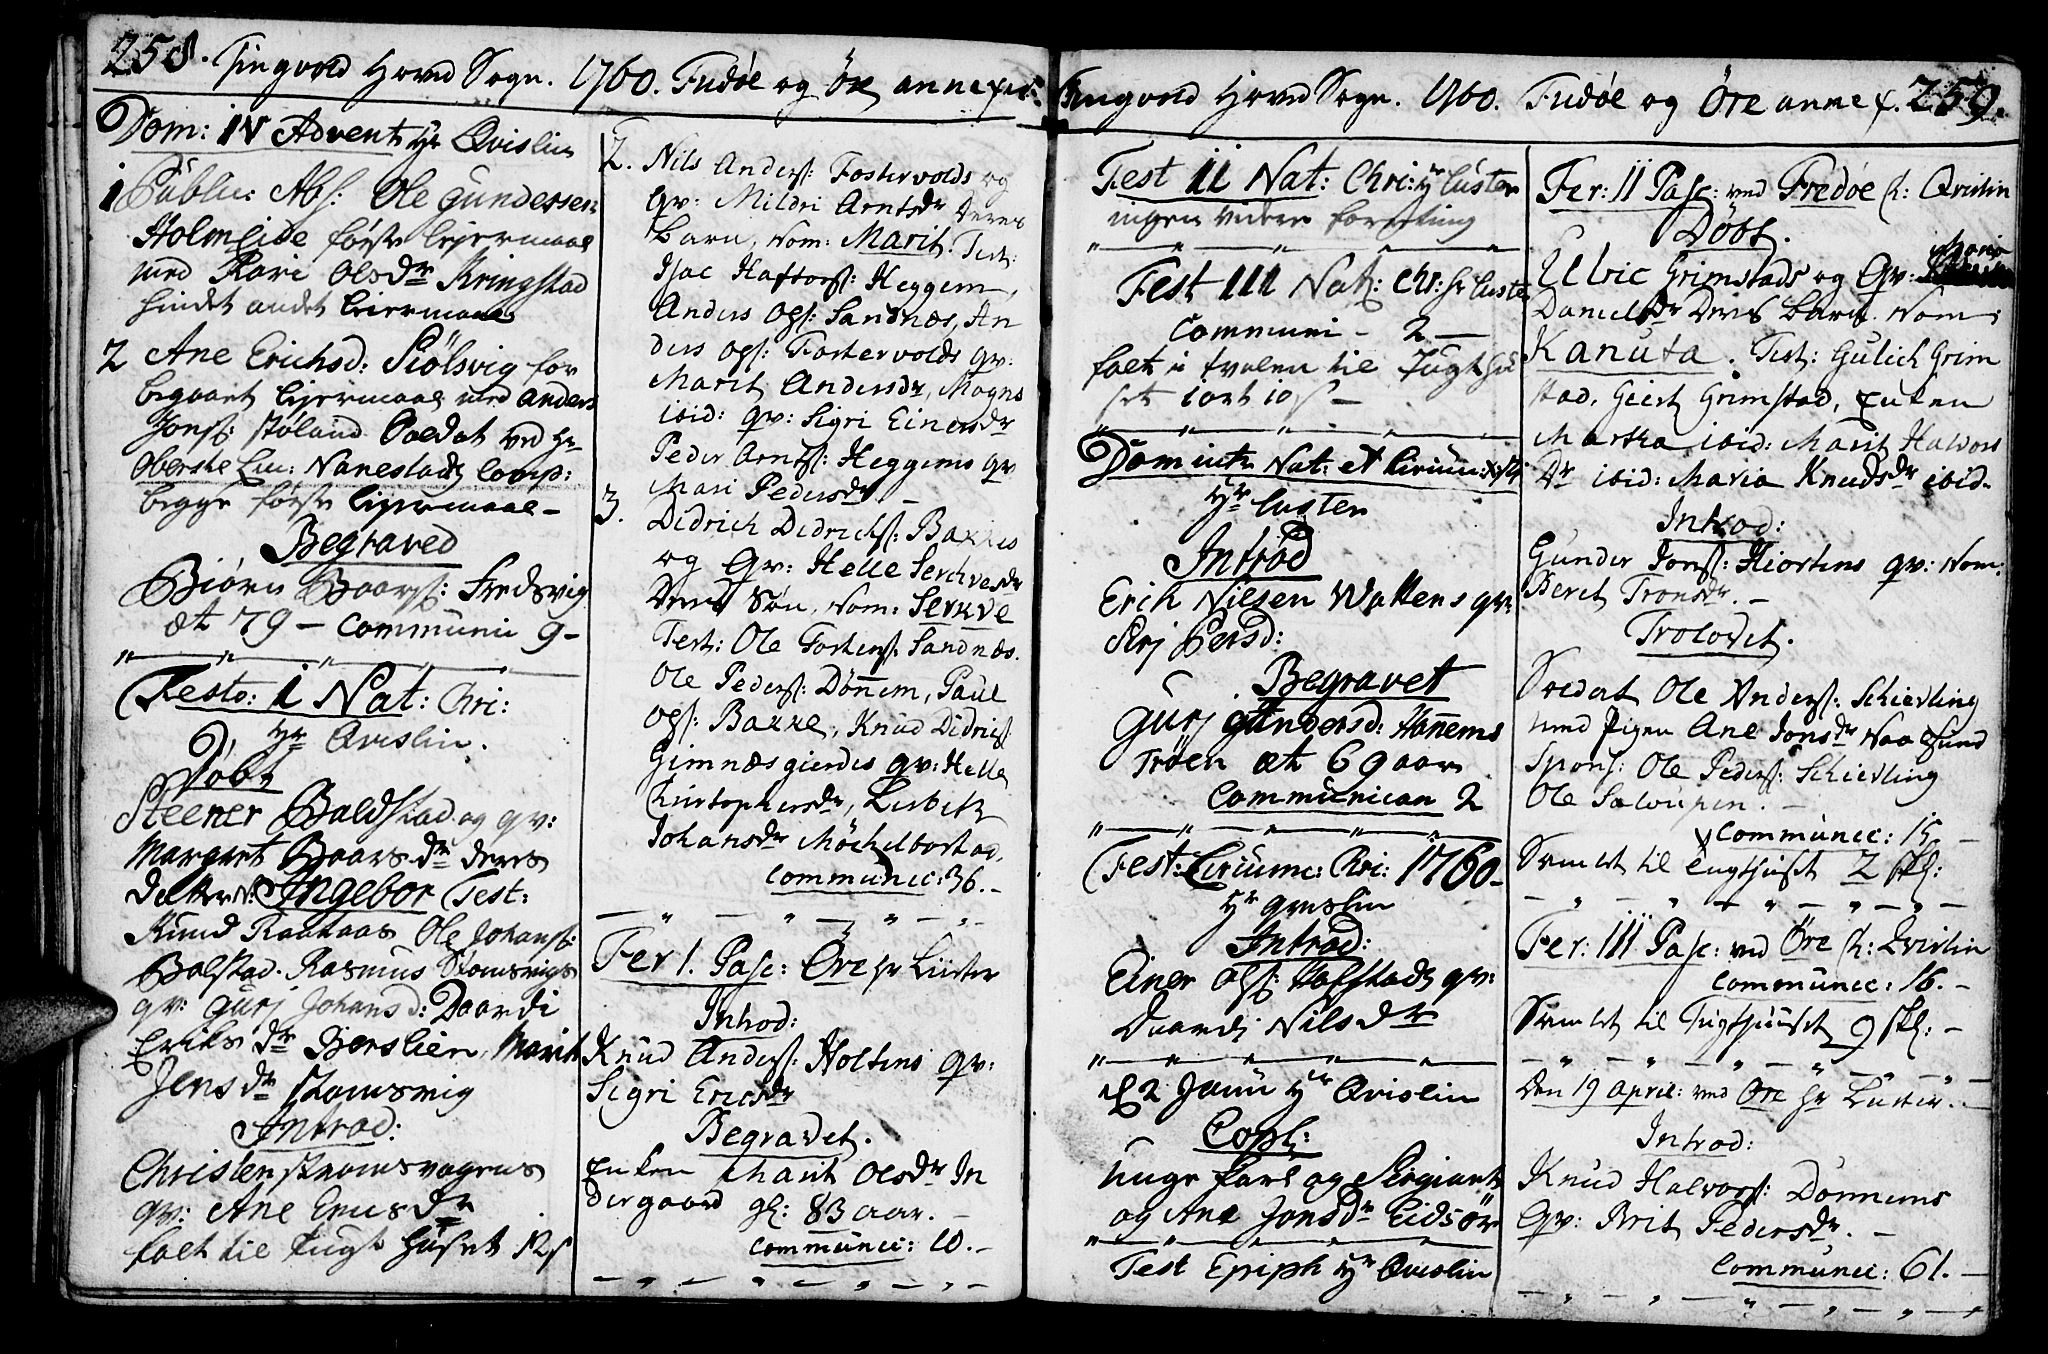 258. Tingvold Hoved Sogn. 1760. Fredøe og Öre annexer.
Dom: IV Advent Hr Qvislin
1 Publi: Abs: Ole Gundersen
Holmeide første leyermaal
med Kari Olsdr Kringstad
hindes andet leiermaal
2 Ane Erichsd: Siølsvig for
begaaet leyermaal med Anders
Jons: Støland Soldat ved Hr
Oberste Lieu: Nanestads Comp:
begge første leyermaal –
Begraved
Biørn Baars: Fredsvig
æt 79 – Communi 9 –
Festo: I Nat: Chri:
Hr Qvislin.
Døbt
Steener Baldstad og qv:
Margret Baarsdr deres
datter N: Ingebor Test:
Knud Raahaas Ole Johans:
Bolstad. Rasmus Stomsvigs
qv: Gurj Johansd: Daardi
Eriksdr Berslien, Marit
Jensdr Stomsvig
Introd:
Christen Stromsvogens
qv: Ane Ericsdr
falt til Tugt Huset 12 s
2. Nils Anders: Fostervolds og
Qv: Mildri Arntsdr Deres
Barn, Nom: Marit. Test:
Isac Haftors: Heggem,
Anders Ols: Sandnæs, An
ders Ols: Fostervolds qv:
Marit Andersdr, Mogns
ibid: qv: Sigri Einersdr
Peder Arnts: Heggems qv
Mari Pedersdr –
3. Didrich Didrichs: Bakkes
og Qv: Helle Serchvesdr
Deres Søn, Nom: Serkve
Test: Ole Tostens: Sandnæs.
Ole Peders: Dönnem, Paul
Ols: Bakke, Knud Didrics:
Gimnæsgierdes qv: Helle
Christophersdr, Lisbeth
Johansdr Möchelbostad,
Communic: 36. –
Fer 1. Pasc: Öre Hr Lüster
Introd:
Knud Anders: Holtens qv:
Sigri Ericsdr
Begravet.
Enken Marit Olsdr In
dergaard gl: 83 aar. –
Communic: 10. –
Tingvold Hoved Sogn. 1760. Fredøe og Öre annex. 259.
Fest II Nat: Chri: Hr Luster
ingen videre forretning
Fest III Nat: Chr: Hr Luster
Communi – 2 –
falt i tvalen til Tugt Hu
set 1 ort 10 s –
Dom int: Nat: et Circum: Xsti
Hr Luster
Introd
Erich Nilsen Wattens qv:
Sirj Persd:
Begravet
Gurj Gundersd: Hanems
Trøen æt 69 aar
Communican 2
Fest: Circumc: Chri: 1760 –
Hr Qvislin
Introd:
Einer Ols: Hafstads qv:
Daardi Nilsdr
d 2 Janu Hr Qvislin
Copl:
unge Karl og Sergiant
og Ane Jonsdr Eidsör
Fest Epiph Hr Qvislin
Fer: II Pasc: ved Fredøe H: Qvislin
Döbt.
Ulric Grimstads og Qv: Maria
Danielsdr Deres Barn. Nom:
Kanuta. Test: Gulich Grim
stad, Giert Grimstad, Enken
Martha ibid: Marit Halvors
Dr ibid: Maria Knudsdr ibid.
Introd:
Gunder Jons: Hiortens qv: Nom:
Beret Tronsdr. –
Trolovet.
Soldat Ole Anders: Schierling
med Pigen Ane Jonsdr Naasund
Spons: Ole Peders: Schierling
Ole Salvesen. –
Communic: 15. –
Samlet til Tugthuset 2 skl:
Fer: III Pasc: ved Öre H: Qvislin
Communic: 16. –
Samlet til Tugthuuset 9 skl: –
Den 19 April: ved Öre Hr Lüster. –
Introd:
Knud Halvors: Dönnems
Qv: Brit Pedersdr. –
Communic: 61. –